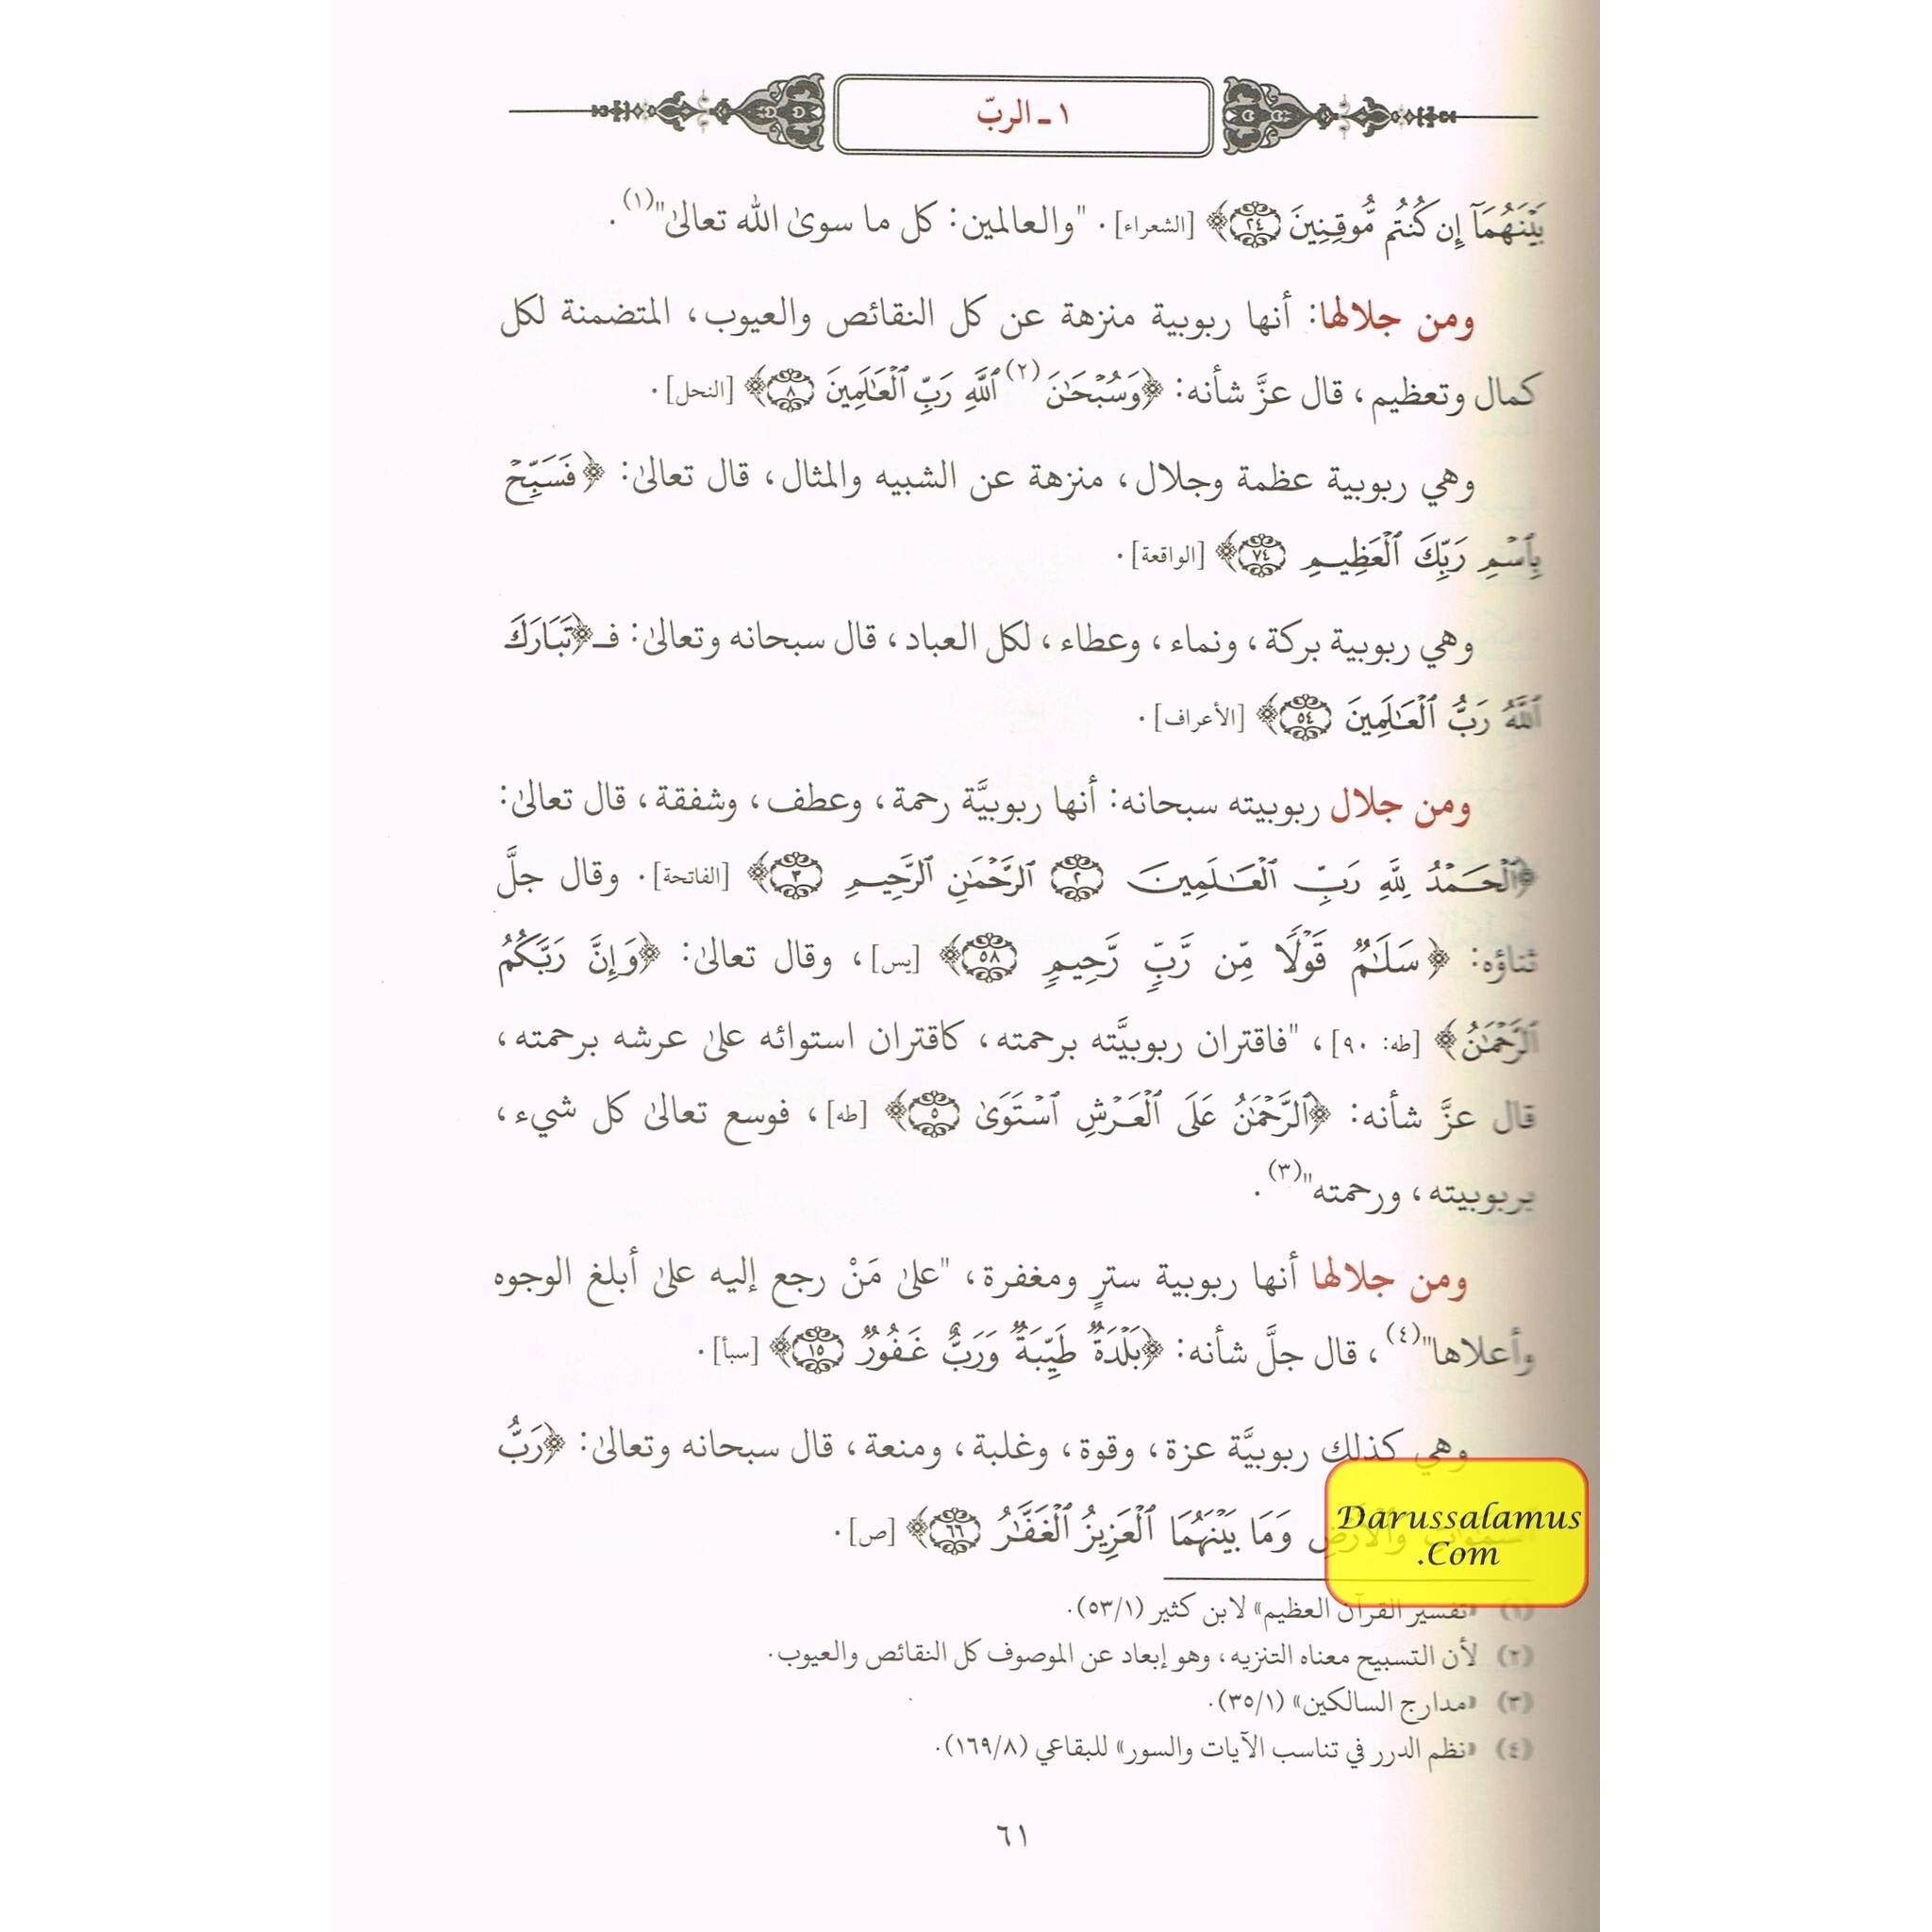 ١ - الربّ
بَيْنَهُمَآ إِن كُنتُم مُّوقِنِينَ ٢٤﴾ [الشعراء]. "والعالمين: كل ما سوىٰ الله تعالىٰ"(١).
ومن جلالها: أنها ربوبية منزهة عن كل النقائص والعيوب، المتضمنة لكل
كمال وتعظيم، قال عزَّ شأنه: ﴿وَسُبْحَٰنَ(٢) ٱللَّهِ رَبِّ ٱلْعَٰلَمِينَ ٨﴾ [النحل].
وهي ربوبية عظمة وجلال، منزهة عن الشبيه والمثال، قال تعالىٰ: ﴿فَسَبِّحْ
بِٱسْمِ رَبِّكَ ٱلْعَظِيمِ ٧٤﴾ [الواقعة].
وهي ربوبية بركة، ونماء، وعطاء، لكل العباد، قال سبحانه وتعالىٰ: فـ﴿تَبَارَكَ
ٱللَّهُ رَبُّ ٱلْعَٰلَمِينَ ٥٤﴾ [الأعراف].
ومن جلال ربوبيته سبحانه: أنها ربوبيَّة رحمة، وعطف، وشفقة، قال تعالىٰ:
﴿ٱلْحَمْدُ لِلَّهِ رَبِّ ٱلْعَٰلَمِينَ ٢ ٱلرَّحْمَٰنِ ٱلرَّحِيمِ ٣﴾ [الفاتحة]. وقال جلَّ
ثناؤه: ﴿سَلَٰمٌ قَوْلًا مِّن رَّبٍّ رَّحِيمٍ ٥٨﴾ [يس]، وقال تعالىٰ: ﴿وَإِنَّ رَبَّكُمُ
ٱلرَّحْمَٰنُ﴾ [طه: ٩٠]، "فاقتران ربوبيَّته برحمته، كاقتران استوائه علىٰ عرشه برحمته،
قال عزَّ شأنه: ﴿ٱلرَّحْمَٰنُ عَلَى ٱلْعَرْشِ ٱسْتَوَىٰ ٥﴾ [طه]، فوسع تعالىٰ كل شيء،
بربوبيته، ورحمته"(٣).
ومن جلالها أنها ربوبية سترٍ ومغفرة، "علىٰ مَنْ رجع إليه علىٰ أبلغ الوجوه
وأعلاها"(٤)، قال جلَّ شأنه: ﴿بَلْدَةٌ طَيِّبَةٌ وَرَبٌّ غَفُورٌ ١٥﴾ [سبأ].
وهي كذلك ربوبيَّة عزة، وقوة، وغلبة، ومنعة، قال سبحانه وتعالىٰ: ﴿رَبُّ
ٱلسَّمَٰوَٰتِ وَٱلْأَرْضِ وَمَا بَيْنَهُمَا ٱلْعَزِيزُ ٱلْغَفَّٰرُ ٦٦﴾ [ص].
Darussalamus
.Com
(١) «تفسير القرآن العظيم» لابن كثير (٥٣/١).
(٢) لأن التسبيح معناه التنزيه، وهو إبعاد عن الموصوف كل النقائص والعيوب.
(٣) «مدارج السالكين» (٣٥/١).
(٤) «نظم الدرر في تناسب الآيات والسور» للبقاعي (١٦٩/٨).
٦١